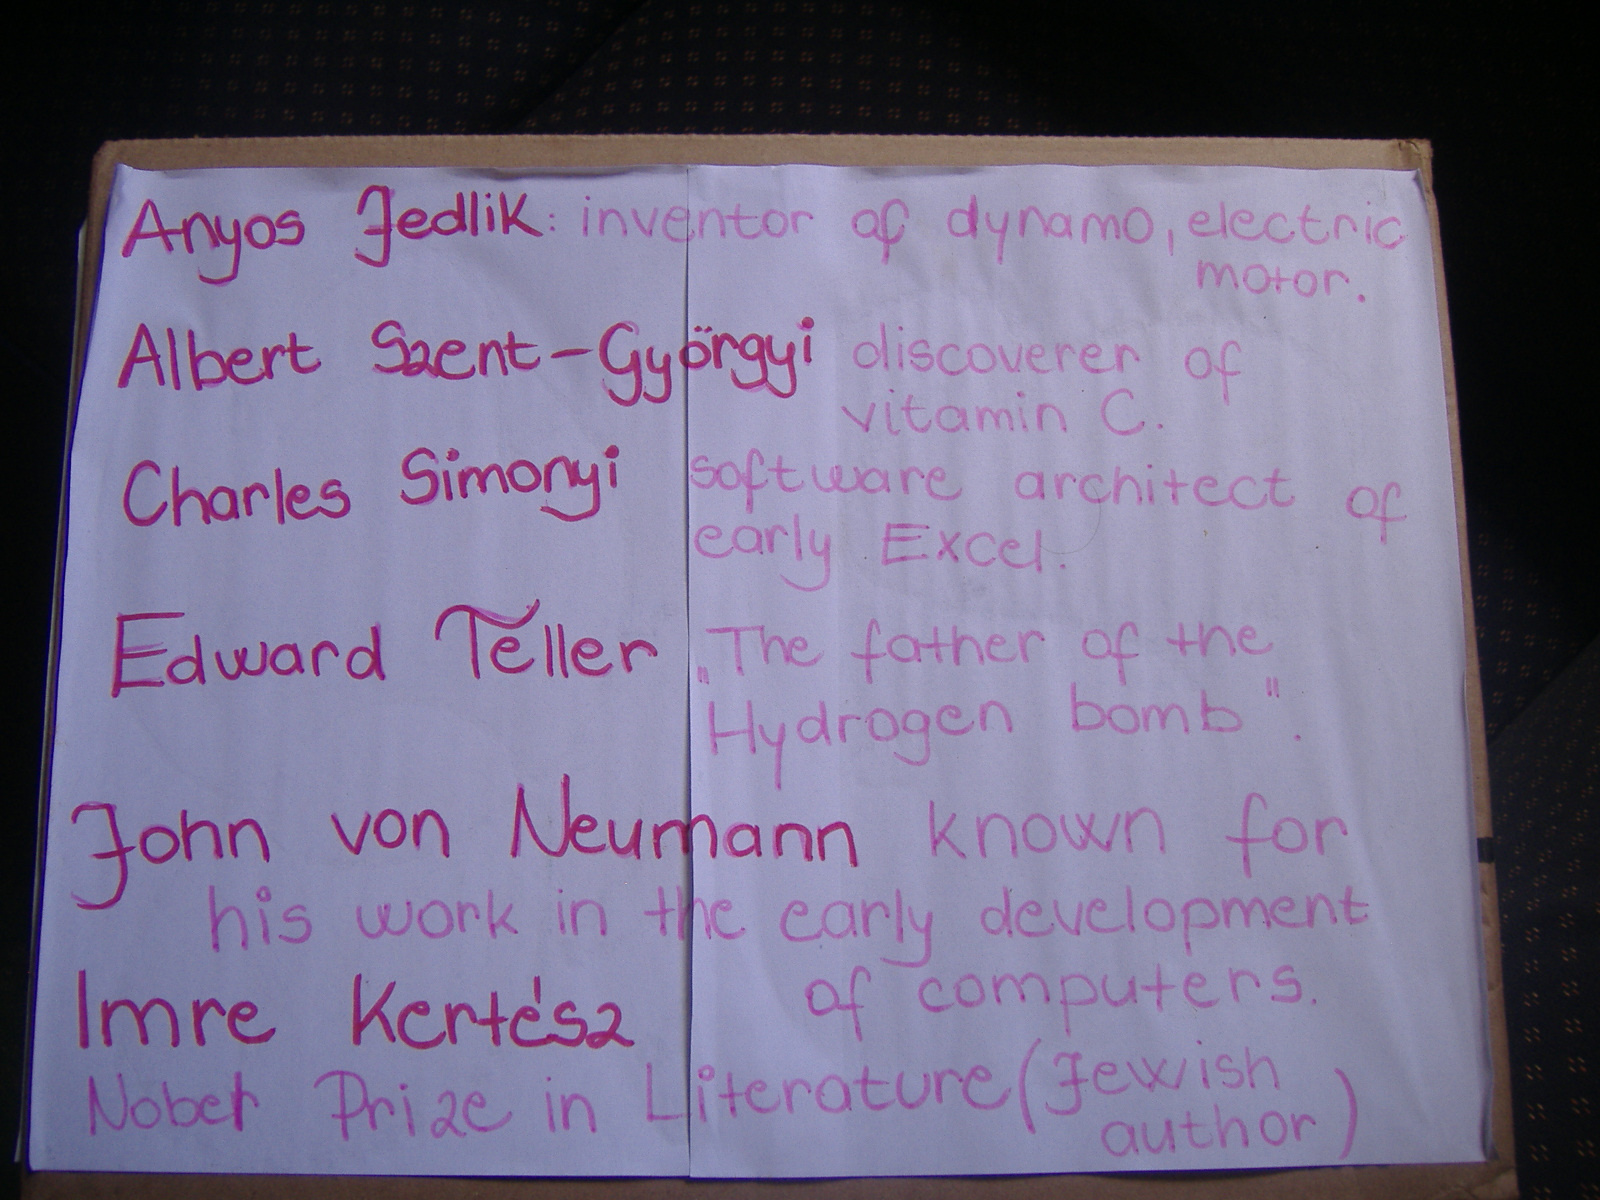 Anyos Jedlik: inventor of dynamo, electric
motor.
Albert Szent-Györgyi discoverer of
vitamin C.
Charles Simonyi software architect of
early Excel.
Edward Teller „The father of the
Hydrogen bomb".
John von Neumann known for
his work in the early development
of computers.
Imre Kertész
Nobel Prize in Literature (Jewish
author)